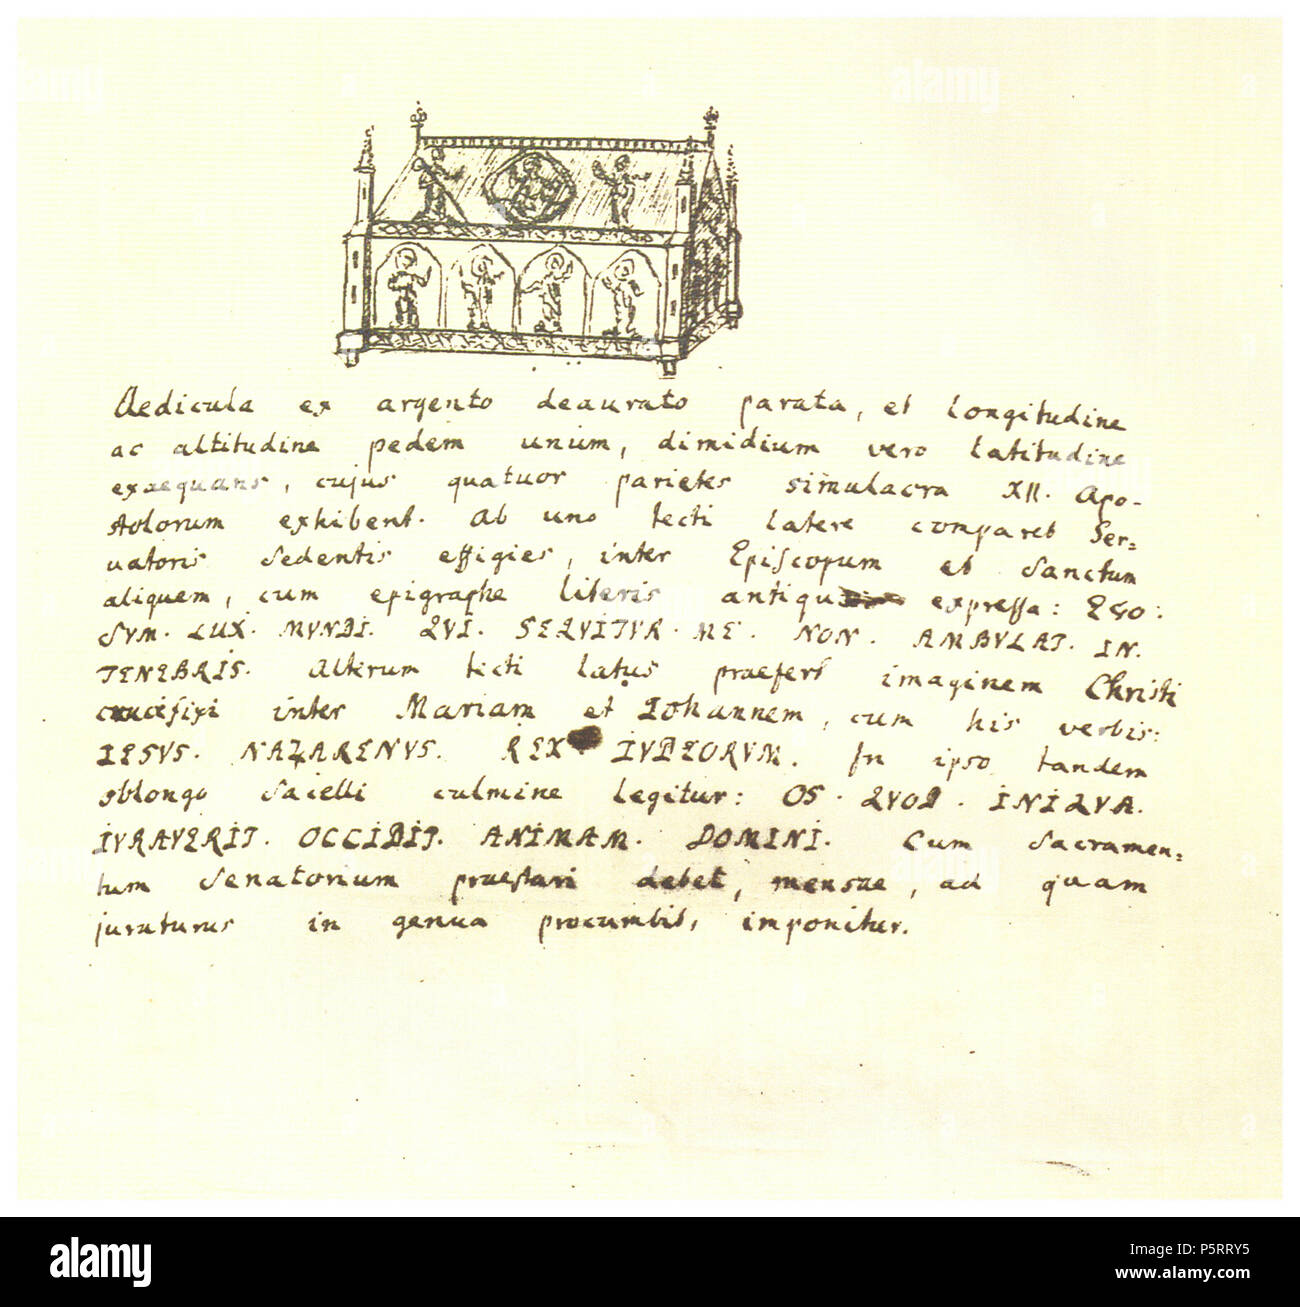 Aedicula ex argento deaurato parata, et longitudine
ac altitudine pedem unum, dimidium vero latitudine
exaequans, cujus quatuor parietes simulacra XII. Apo-
stolorum exhibent. Ab uno tecti latere comparet Ser=
vatoris sedentis effigies, inter Episcopum et Sanctum
aliquem, cum epigraphe literis expressa: EGO:
SVM. LUX. MVNDI. QVI. SEQVITVR. ME. NON. AMBVLAT. IN.
TENEBRIS. Alterum tecti latus praefert imaginem Christi
crucifixi inter Mariam et Johannem, cum his verbis:
IESVS. NAZARENVS. REX IVDEORVM. In ipso tandem
oblongo Sacelli culmine legitur: OS. QVOD. INIQVA.
IVRAVERIT. OCCIDIT. ANIMAM. DOMINI. Cum Sacramen=
tum Senatorium praestari debet, mensae, ad quam
juraturus in genua procumbit, imponitur.
alamy
alamy
a
a
a
a
alamy
Image ID: P5RRY5
www.alamy.com